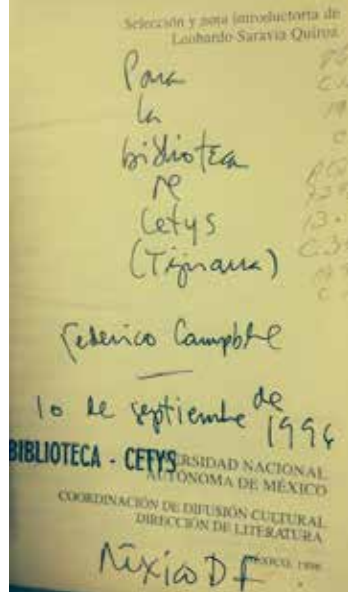 Selección y nota introductoria de
Leobardo Saravia Quiroz
Para
la
biblioteca
de
Cetys
(Tijuana)
Federico Campbell
10 de septiembre de
1996
BIBLIOTECA - CETYS
UNIVERSIDAD NACIONAL
AUTÓNOMA DE MÉXICO
COORDINACIÓN DE DIFUSIÓN CULTURAL
DIRECCIÓN DE LITERATURA
MÉXICO, 1996
México DF.